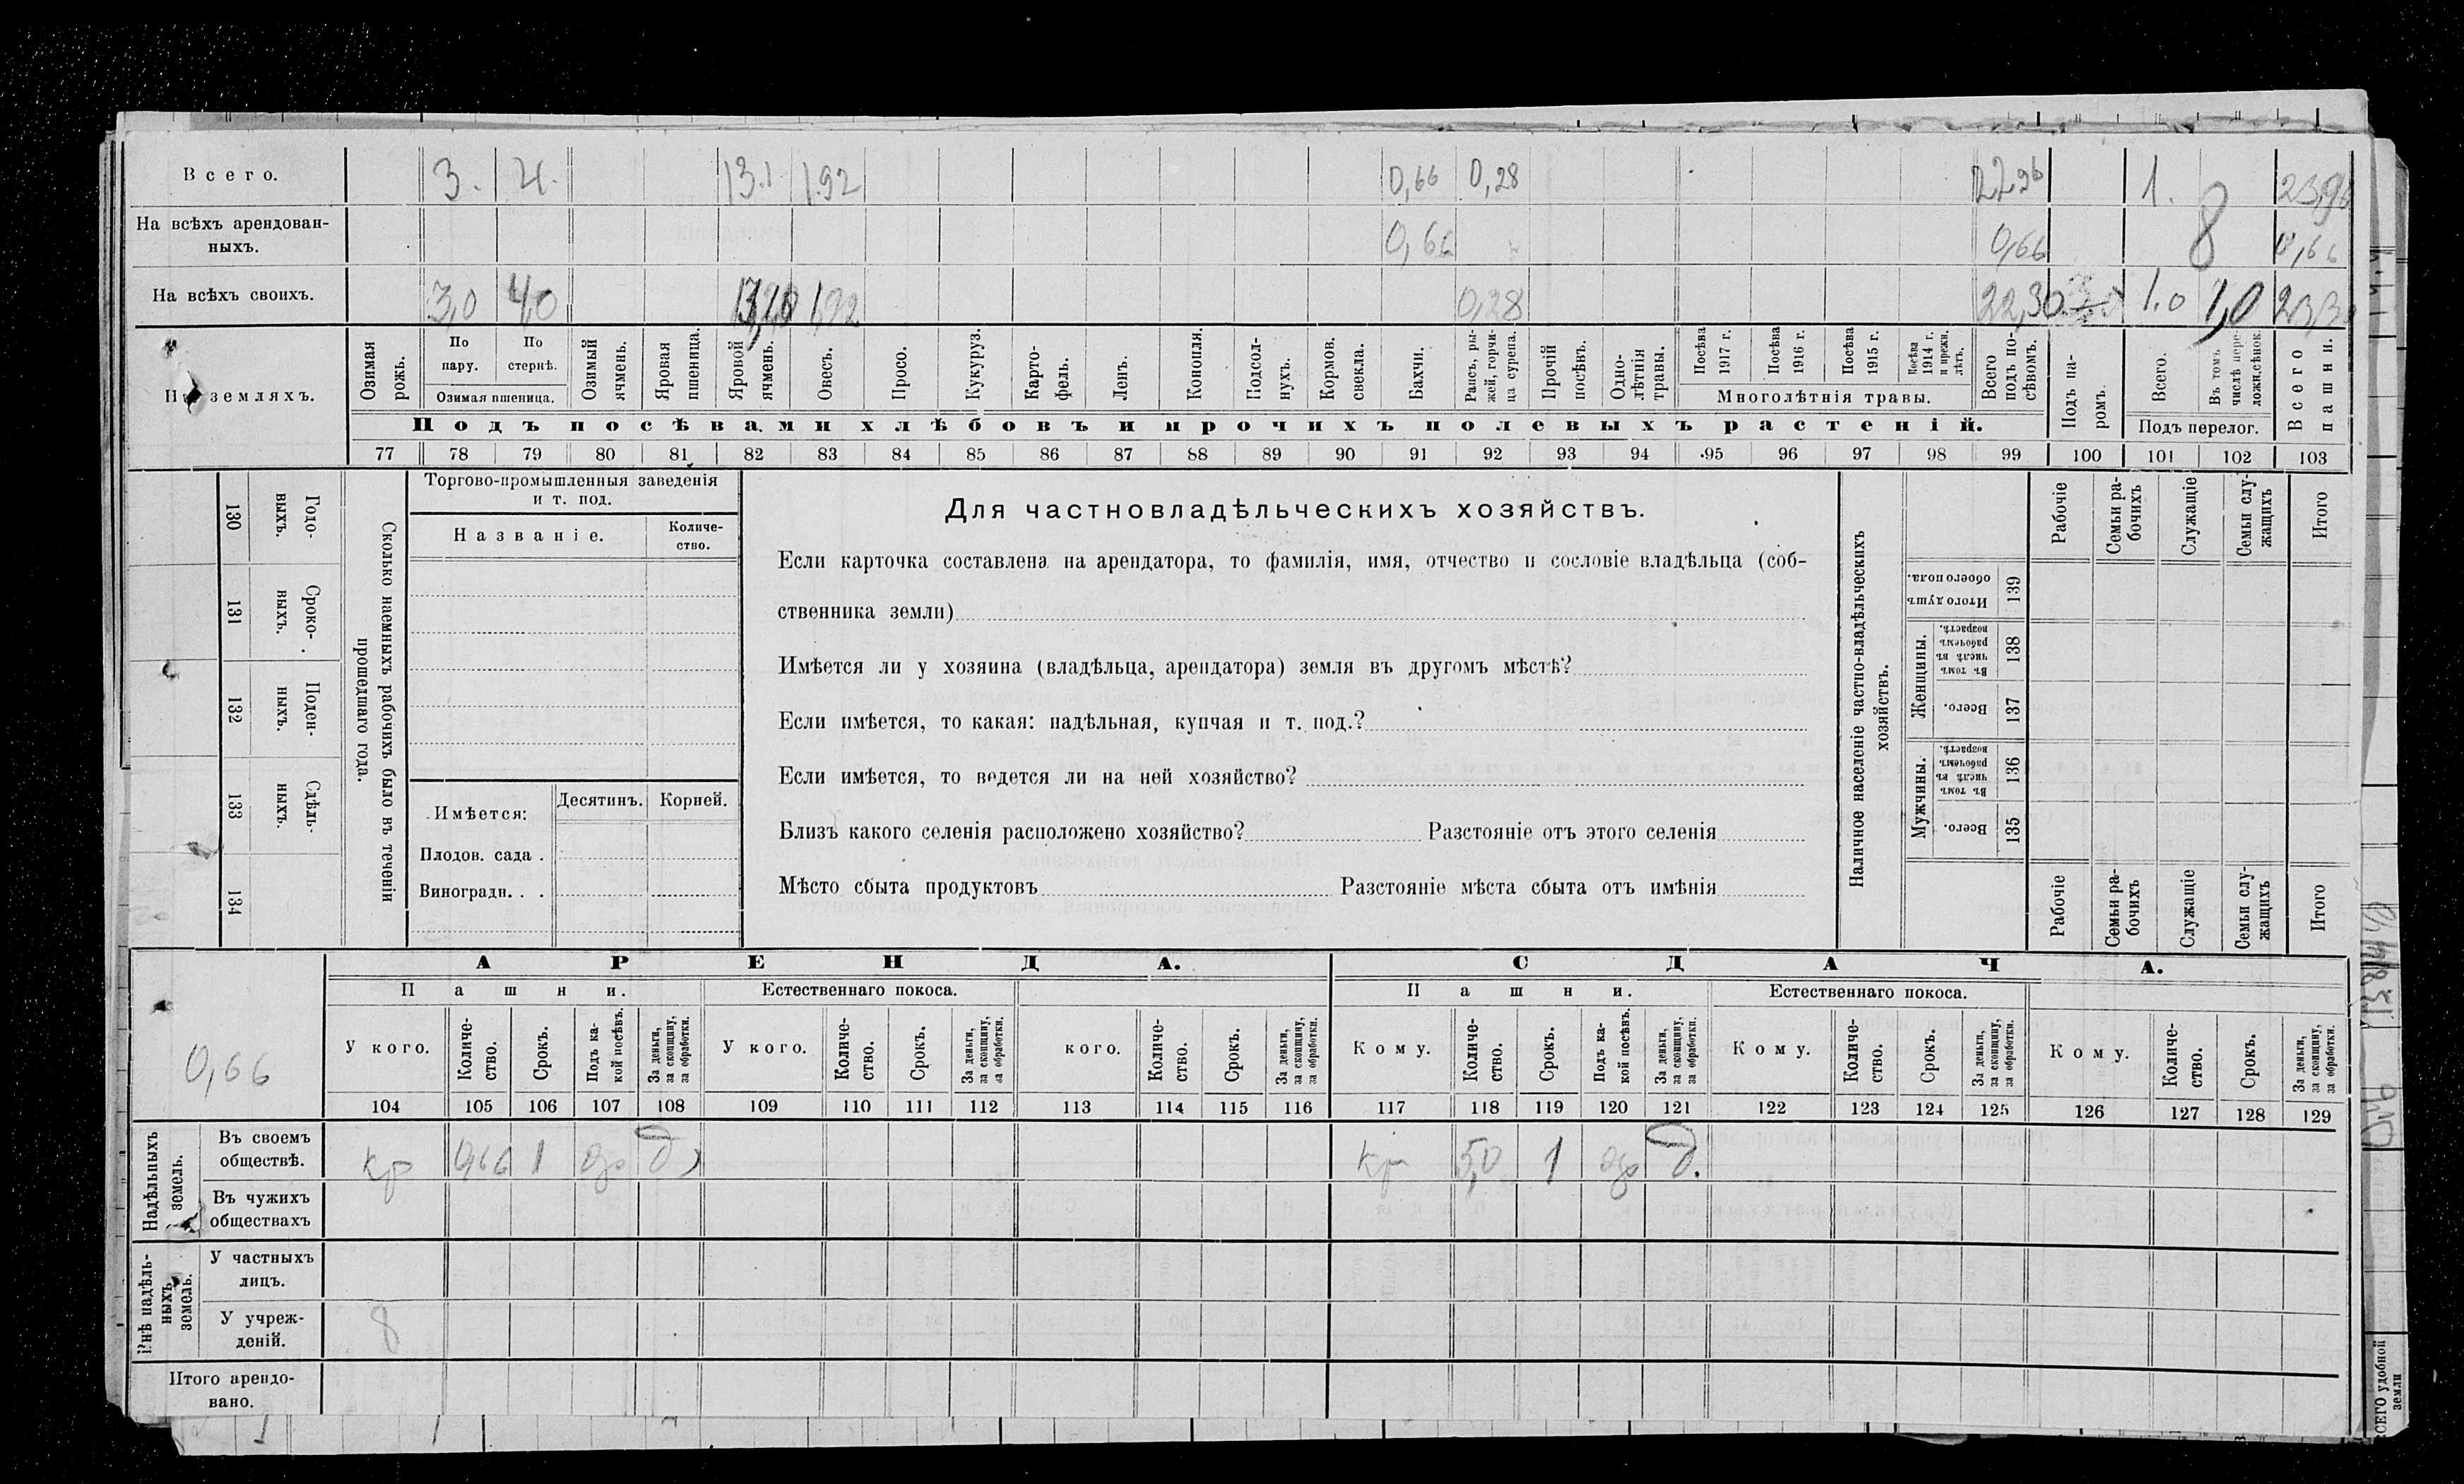 Всего. 3. 4. 13.1 1.92 0,66 0,28 22,96 1. 23,96
На всѣхъ арендован-
ныхъ. 0,66 0,66 8 0,66
На всѣхъ своихъ. 3,0 4,0 1,92 0,28 22,30 1.0 1,0
земляхъ.
Озимая рожь.
По пару.
По стернѣ.
Озимая пшеница.
Озимый ячмень.
Яровая пшеница.
Яровой ячмень.
Овесъ.
Просо.
Кукуруз.
Карто-
фель.
Ленъ.
Конопля.
Подсол-
нухъ.
Кормов.
свекла.
Бахчи.
Рапсъ, ры-
жей, горчи-
ца сурепа.
Прочій
посѣвъ.
Одно-
лѣтнія
травы.
Посѣва
1917 г.
Посѣва
1916 г.
Посѣва
1915 г.
Посѣва
1914 г.
и прежн.
лѣтъ.
Многолѣтнія травы.
Всего
подъ по-
сѣвомъ.
Подъ па-
ромъ.
Всего.
Въ томъ
числѣ пере-
ложн.сѣнок.
Подъ перелог.
Всего
пашни.
Подъ посѣвами хлѣбовъ и прочихъ полевыхъ растеній.
77 78 79 80 81 82 83 84 85 86 87 88 89 90 91 92 93 94 95 96 97 98 99 100 101 102 103
130 Годо-
выхъ.
131 Сроко-
выхъ.
132 Поден-
ныхъ.
133 Сдѣль-
ныхъ.
134
Сколько наемныхъ рабочихъ было въ теченіи
прошедшаго года.
Торгово-промышленныя заведенія
и т. под.
Названіе.
Количе-
ство.
Имѣется:
Десятинъ. Корней.
Плодов. сада .
Виноградн. . .
Для частновладѣльческихъ хозяйствъ.
Если карточка составлена на арендатора, то фамилія, имя, отчество и сословіе владѣльца (соб-
ственника земли)
Имѣется ли у хозяина (владѣльца, арендатора) земля въ другомъ мѣстѣ?
Если имѣется, то какая: надѣльная, купчая и т. под.?
Если имѣется, то ведется ли на ней хозяйство?
Близъ какого селенія расположено хозяйство? Разстояніе отъ этого селенія
Мѣсто сбыта продуктовъ Разстояніе мѣста сбыта отъ имѣнія
Наличное населеніе частно-владѣльческихъ
хозяйствъ.
Рабочіе
Семьи ра-
бочихъ
Служащіе
Семьи слу-
жащихъ
Итого
Итого душъ
обоего пола.
139
Женщины.
Въ томъ
числѣ въ
рабочемъ
возрастѣ.
138
Всего.
137
Мужчины.
Въ томъ
числѣ въ
рабочемъ
возрастѣ.
136
Всего.
135
Рабочіе
Семьи ра-
бочихъ
Служащіе
Семьи слу-
жащихъ
Итого
0,66
АРЕНДА. СДАЧА.
Пашни. Естественнаго покоса. Пашни. Естественнаго покоса.
У кого.
Количе-
ство.
Срокъ.
Подъ ка-
кой посѣвъ.
За деньги,
за скопщину,
за обработки.
У кого.
Количе-
ство.
Срокъ.
За деньги,
за скопщину,
за обработки.
кого.
Количе-
ство.
Срокъ.
За деньги,
за скопщину,
за обработки.
Кому.
Количе-
ство.
Срокъ.
Подъ ка-
кой посѣвъ.
За деньги,
за скопщину,
за обработки.
Кому.
Количе-
ство.
Срокъ.
За деньги,
за скопщину,
за обработки.
Кому.
Количе-
ство.
Срокъ.
За деньги,
за скопщину,
за обработки.
104 105 106 107 108 109 110 111 112 113 114 115 116 117 118 119 120 121 122 123 124 125 126 127 128 129
Надѣльныхъ
земель.
Въ своемъ
обществѣ. кр 0,66 1 кр 5,0 1
Въ чужихъ
обществахъ
Внѣ надѣль-
ныхъ
земель.
У частныхъ
лицъ.
У учреж-
деній. 8
Итого арендо-
вано.
ВСЕГО удобной
земли